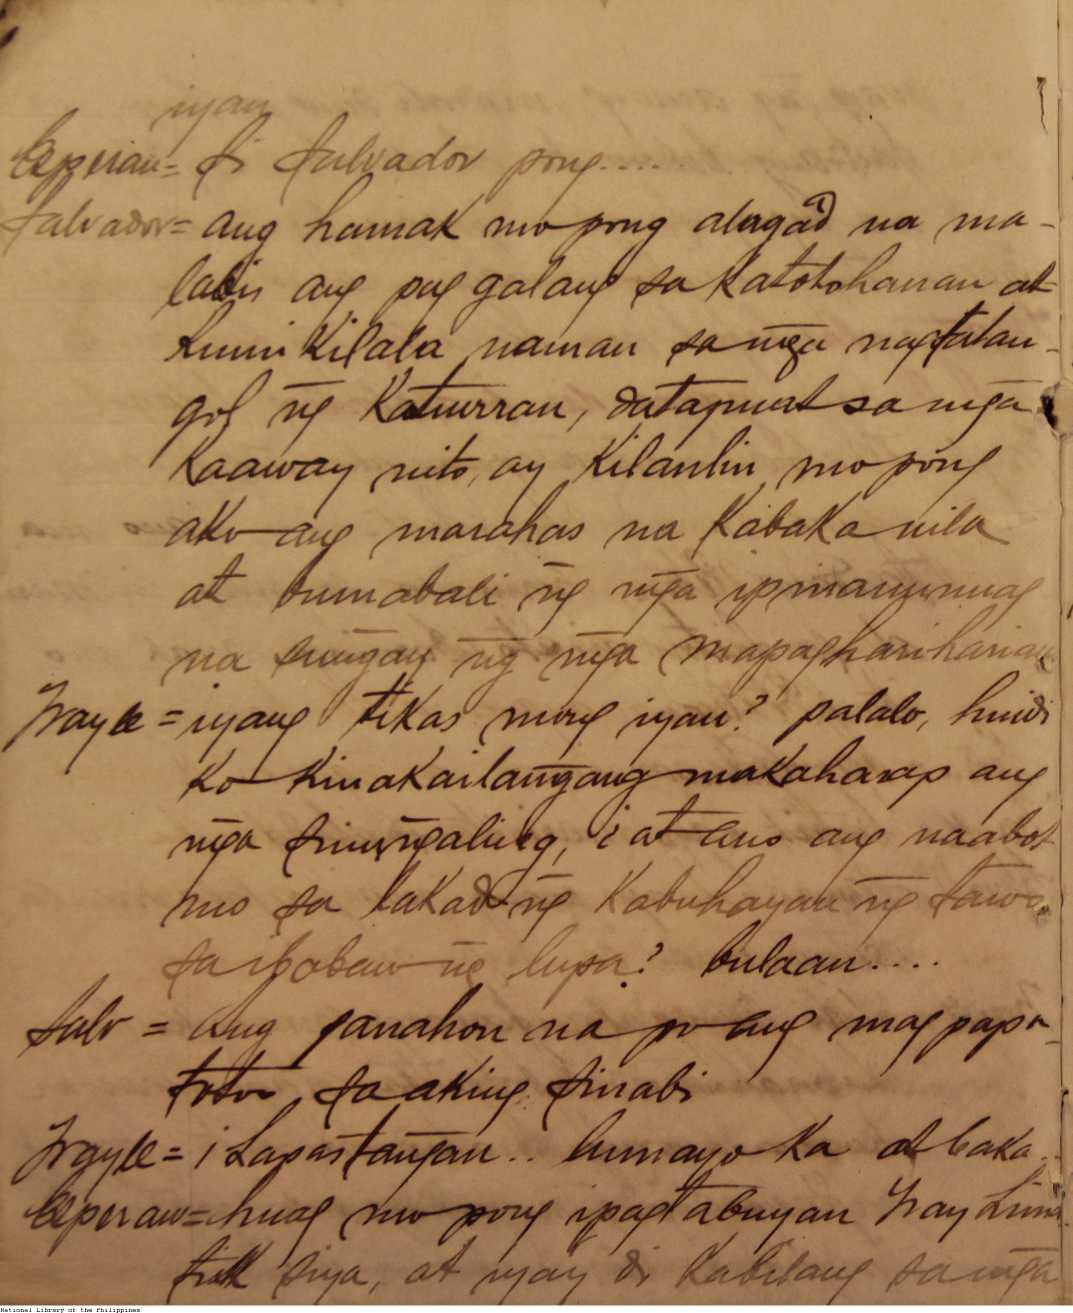 iyan
Esperan= Si Salvador pong....
Salvador= ang hamak mo pong alagad na ma-
labis ang pag galang sa Katotohanan at
kumi Kilala naman sa mga nagtatan-
gol ng Katuwran, datapuat sa mga
Kaaway nito, ay Kilanlin mo pong
ako ang marahas na Kabaka nila
at bumabali ng mga ipinanunuag
na sungay ng mga mapagharihar̃ian
Frayle = iyang tikas mong iyan? palalo, hindi
ko kinakailangang makaharap ang
mga sinungaling, ¿ at ano ang naabot
mo sa lakad ng Kabuhayan ng tawo
sa ibabaw ng lupa? bulaan....
Salv = ang panahon na po ang mag papa-
totoo sa aking sinabi
Frayle = ¡ Lapastangan.. lumayo ka at baka..
Esperan= huag mo pong ipagtabuyan Fray
siya, at iyay di Kabilang sa mga
National Library of the Philippines